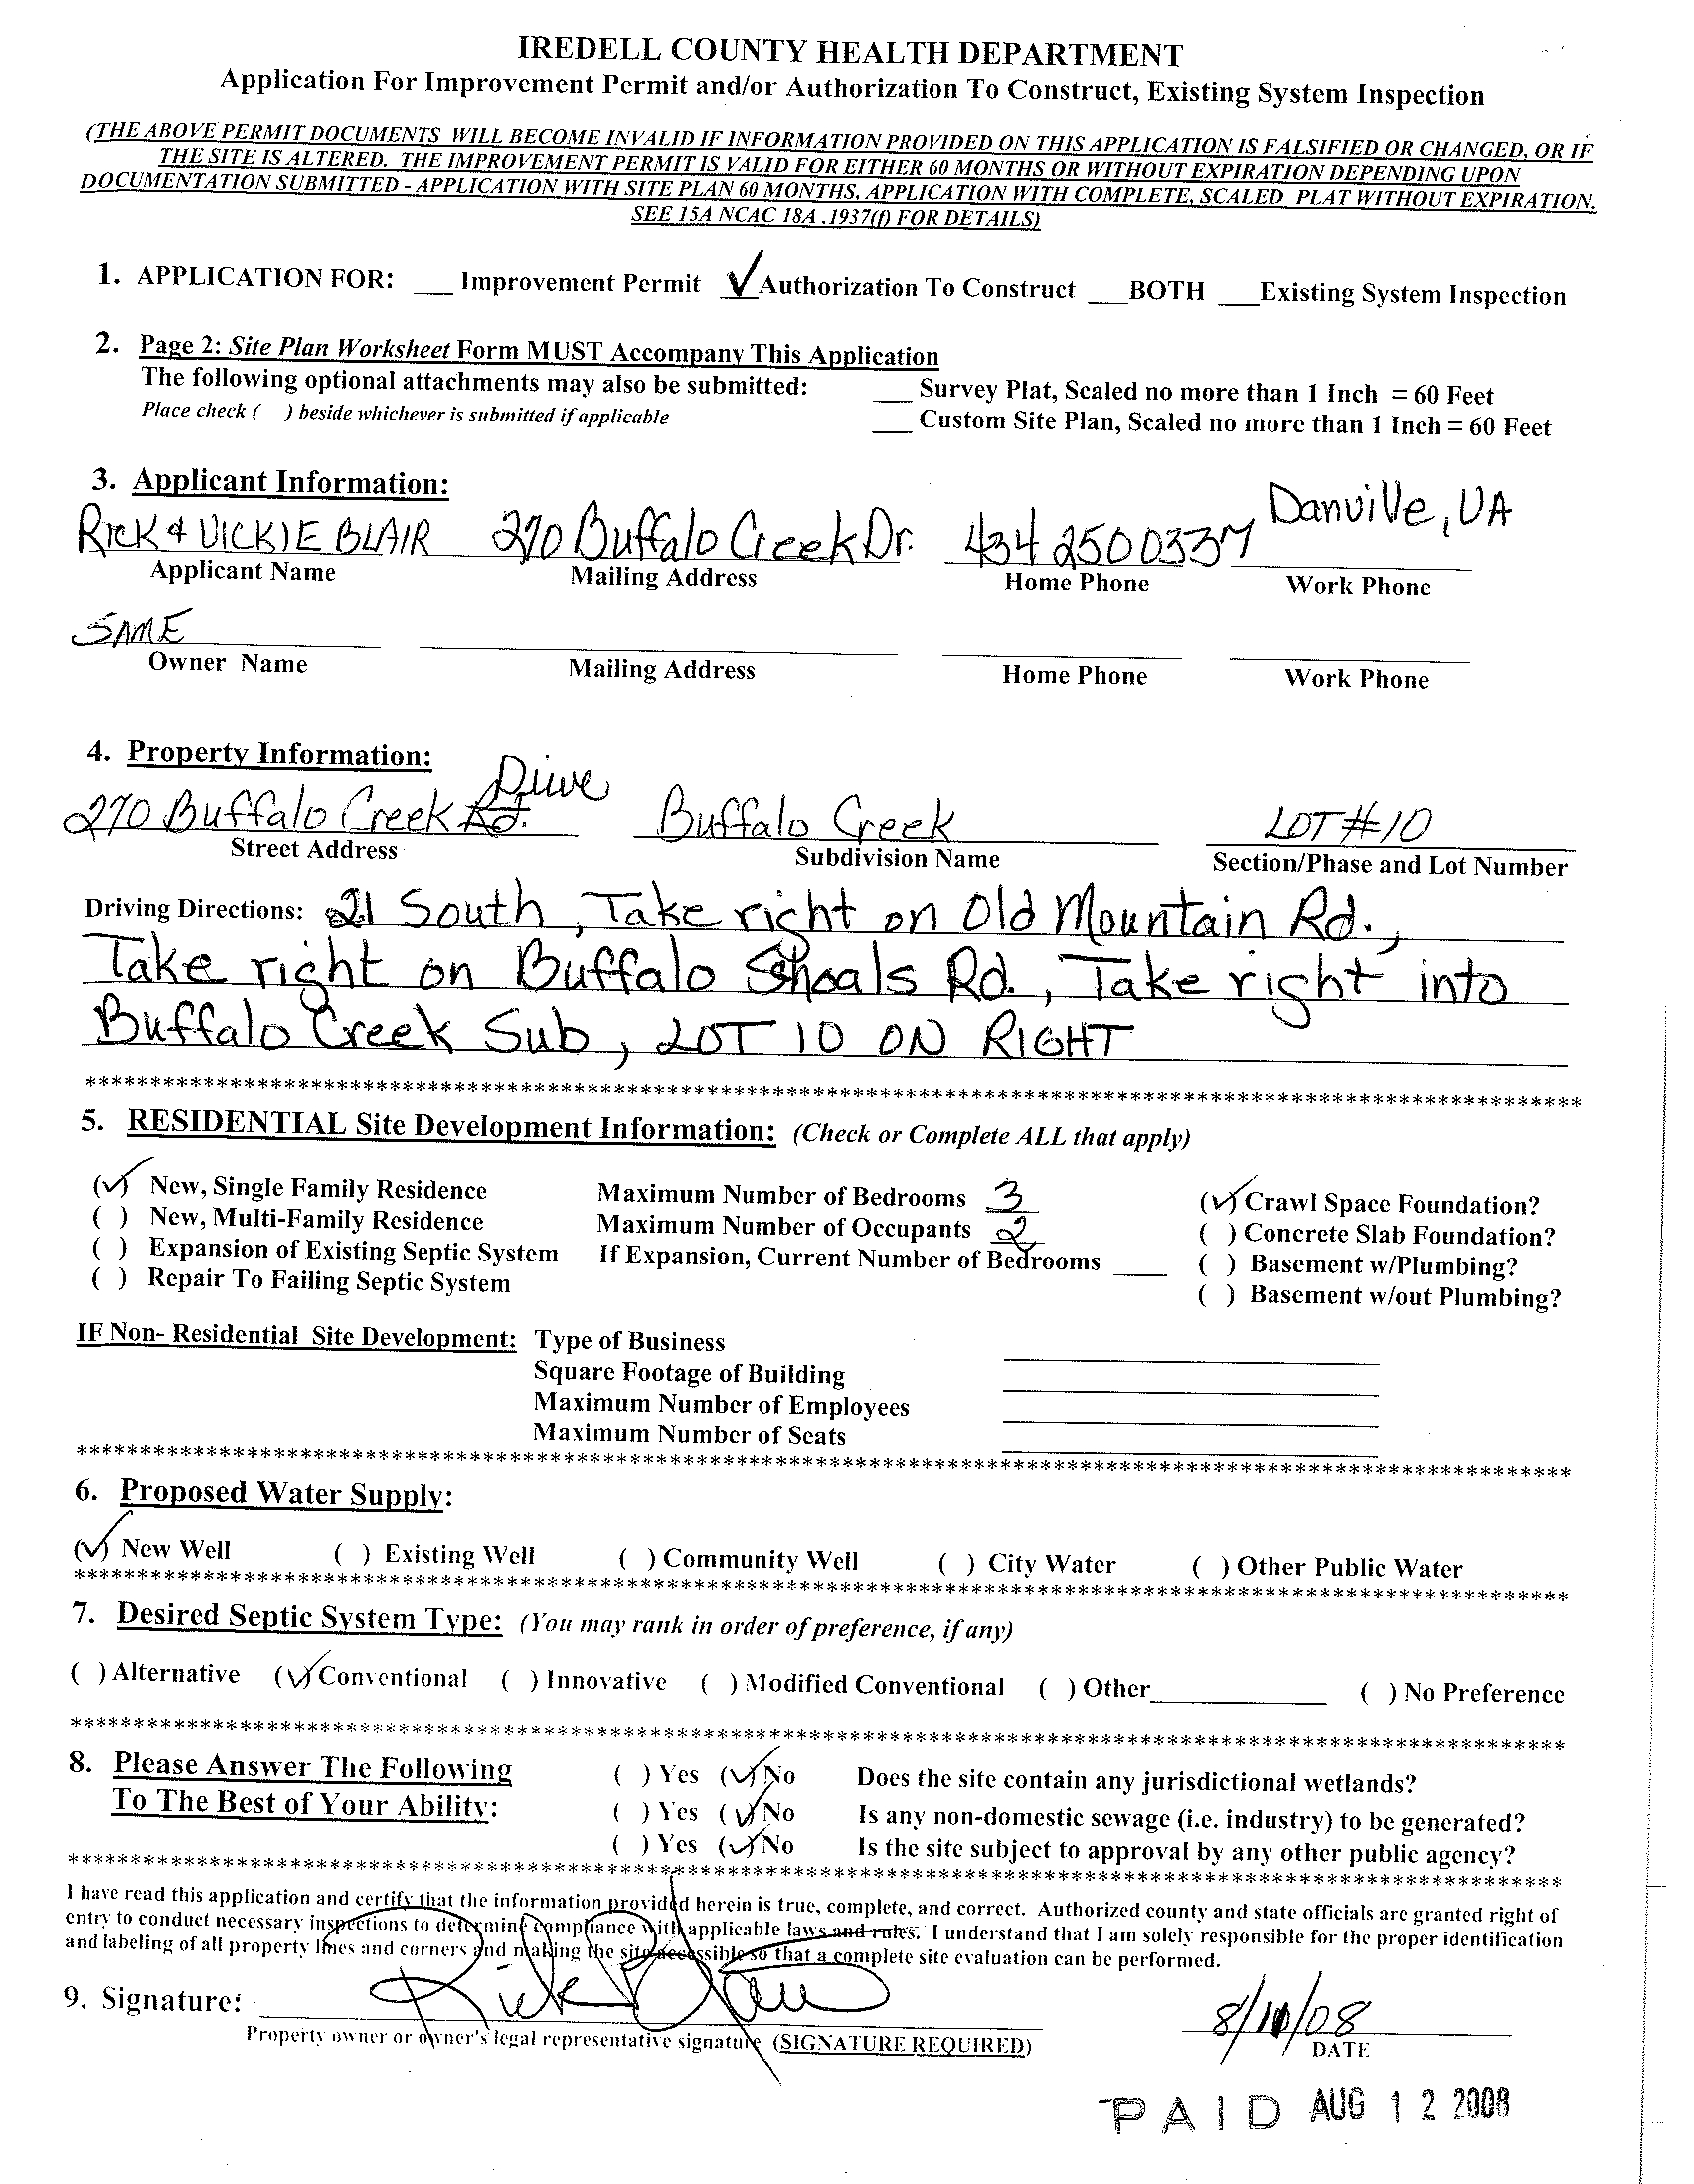 IREDELL COUNTY HEALTH DEPARTMENT
Application For Improvement Permit and/or Authorization To Construct, Existing System Inspection
(THE ABOVE PERMIT DOCUMENTS WILL BECOME INVALID IF INFORMATION PROVIDED ON THIS APPLICATION IS FALSIFIED OR CHANGED, OR IF
THE SITE IS ALTERED. THE IMPROVEMENT PERMIT IS VALID FOR EITHER 60 MONTHS OR WITHOUT EXPIRATION DEPENDING UPON
DOCUMENTATION SUBMITTED - APPLICATION WITH SITE PLAN 60 MONTHS, APPLICATION WITH COMPLETE, SCALED PLAT WITHOUT EXPIRATION.
SEE 15A NCAC 18A .1937(f) FOR DETAILS)
1. APPLICATION FOR: ___ Improvement Permit ✓ Authorization To Construct ___BOTH ___Existing System Inspection
2. Page 2: Site Plan Worksheet Form MUST Accompany This Application
The following optional attachments may also be submitted: ___ Survey Plat, Scaled no more than 1 Inch = 60 Feet
Place check ( ) beside whichever is submitted if applicable ___ Custom Site Plan, Scaled no more than 1 Inch = 60 Feet
3. Applicant Information:
RICK & VICKIE BLAIR 270 Buffalo Creek Dr. 434 250 0337 Danville, VA
Applicant Name Mailing Address Home Phone Work Phone
SAME
Owner Name Mailing Address Home Phone Work Phone
4. Property Information:
270 Buffalo Creek Rd. Drive Buffalo Creek LOT #10
Street Address Subdivision Name Section/Phase and Lot Number
Driving Directions: 21 South, Take right on Old Mountain Rd.,
Take right on Buffalo Shoals Rd., Take right into
Buffalo Creek Sub, LOT 10 ON RIGHT
5. RESIDENTIAL Site Development Information: (Check or Complete ALL that apply)
(✓) New, Single Family Residence Maximum Number of Bedrooms 3 (✓) Crawl Space Foundation?
( ) New, Multi-Family Residence Maximum Number of Occupants 2 ( ) Concrete Slab Foundation?
( ) Expansion of Existing Septic System If Expansion, Current Number of Bedrooms ___ ( ) Basement w/Plumbing?
( ) Repair To Failing Septic System ( ) Basement w/out Plumbing?
IF Non- Residential Site Development: Type of Business
Square Footage of Building
Maximum Number of Employees
Maximum Number of Seats
6. Proposed Water Supply:
(✓) New Well ( ) Existing Well ( ) Community Well ( ) City Water ( ) Other Public Water
7. Desired Septic System Type: (You may rank in order of preference, if any)
( ) Alternative (✓) Conventional ( ) Innovative ( ) Modified Conventional ( ) Other___ ( ) No Preference
8. Please Answer The Following ( ) Yes (✓) No Does the site contain any jurisdictional wetlands?
To The Best of Your Ability: ( ) Yes (✓) No Is any non-domestic sewage (i.e. industry) to be generated?
( ) Yes (✓) No Is the site subject to approval by any other public agency?
I have read this application and certify that the information provided herein is true, complete, and correct. Authorized county and state officials are granted right of
entry to conduct necessary inspections to determine compliance with applicable laws and rules. I understand that I am solely responsible for the proper identification
and labeling of all property lines and corners and making the site accessible so that a complete site evaluation can be performed.
9. Signature: Rick Blair 8/10/08
Property owner or owner's legal representative signature (SIGNATURE REQUIRED) DATE
PAID AUG 12 2008